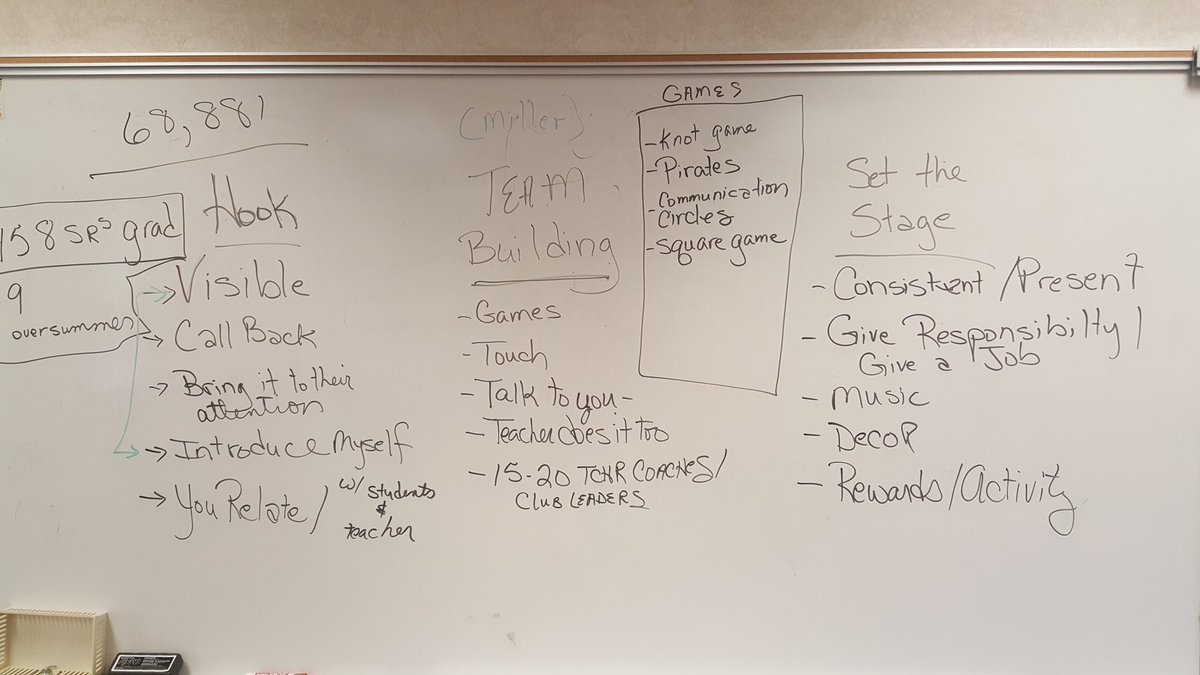 68,881
158 SRS grad
9
oversummer
Hook
→ Visible
→ Call Back
→ Bring it to their
attention
→ Introduce Myself
→ You Relate / w/ students
&
teacher
(Miller)
TEAM
Building
- Games
- Touch
- Talk to you -
- Teacher does it too
- 15-20 TCHR COACHES/
CLUB LEADERS
GAMES
- Knot game
- Pirates
- Communication
Circles
- Square game
Set the
Stage
- Consistent / Present
- Give Responsibilty /
Give a Job
- Music
- Decor
- Rewards/Activity